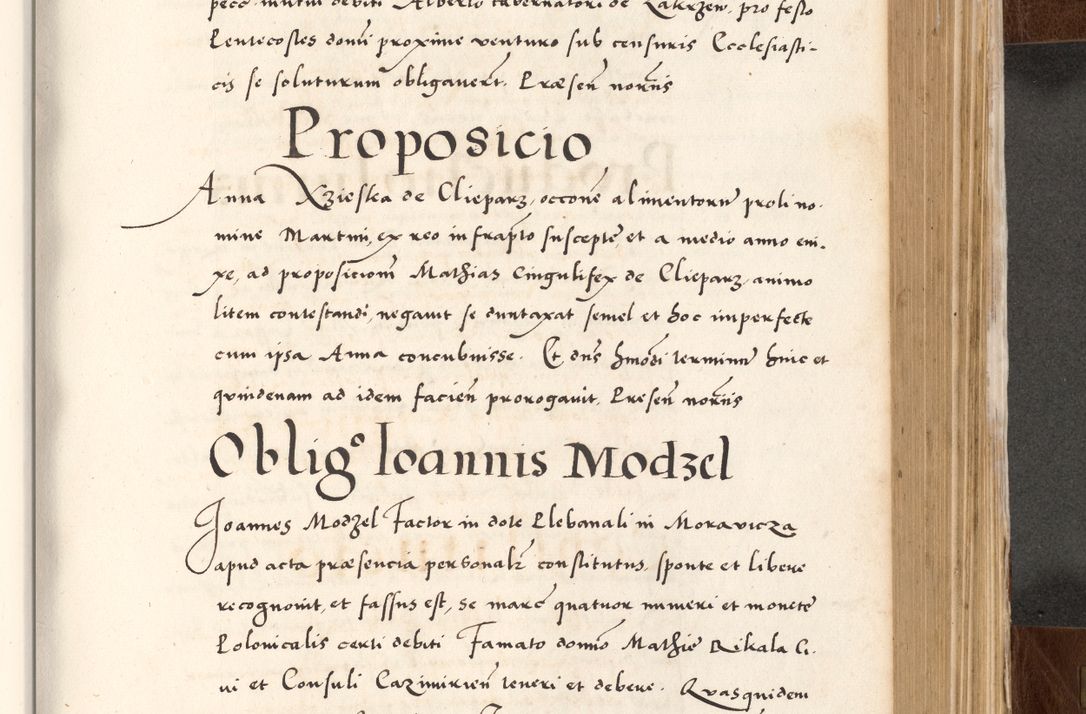 pecc. mutui debiti Alberto tabernatori de Zakrzew, pro festo
Pentecostes domi proxime venturo sub censuris Ecclesiasti-
cis se soluturum obligavert. Præsen norñs
Proposicio
Anna Xzieska de Clieparz, occone alimentorum proli no-
mine Martini, ex reo infrapto suscepte, et a medio anno eni-
xe, ad proposicioni Mathias Cingulifex de Clieparz, animo
litem contestandi, negavit se duntaxat semel et hoc imperfecte
cum ipsa Anna concubuisse. Et dns hmodi terminum huic et
quindenam ad idem facien prorogavit. Presen norñs
Oblig.º Ioannis Modzel
Joannes Modzel Factor in dote Plebanali in Moravicza
apud acta præsencia personalr constitutus, sponte et libere
recognovit, et fassus est, se marc quatuor numeri et monete
Polonicalis certi debiti Famato domino Mathie Rikala Ci-
vi et Consuli Cazimirien teneri et debere. Quasquidem